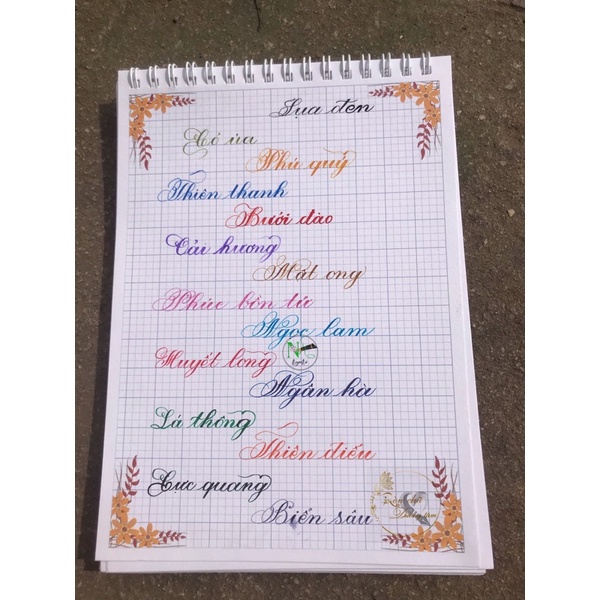 Lụa đen
Cỏ úa
Phú quý
Thiên thanh
Bưởi đào
Cải hương
Mật ong
Phúc bồn tử
Ngọc lam
Huyết long
Ngân hà
Lá thông
Thiên điểu
Cực quang
Biển sâu